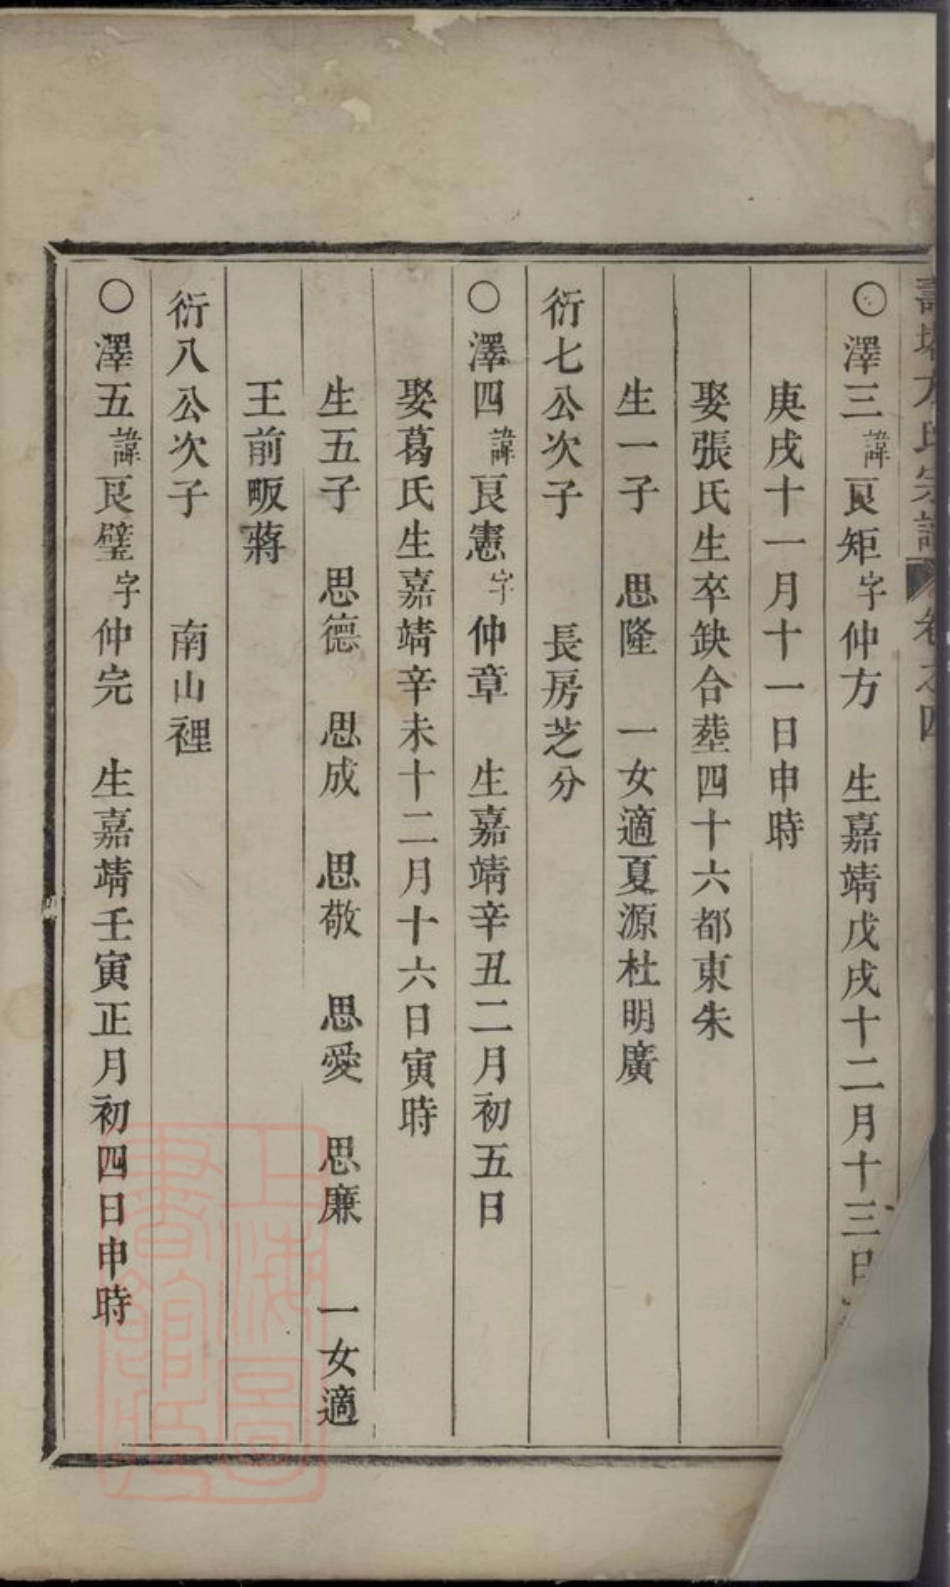 方氏宗譜 卷之四
○澤三諱良矩字仲方 生嘉靖戊戌十二月十三日
庚戌十一月十一日申時
娶張氏生卒缺合塟四十六都東朱
生一子 思隆 一女適夏源杜明廣
衍七公次子 長房芝分
○澤四諱良憲字仲章 生嘉靖辛丑二月初五日
娶葛氏生嘉靖辛未十二月十六日寅時
生五子 思德 思成 思敬 思愛 思廉 一女適
王前畈蔣
衍八公次子 南山裡
○澤五諱良璧字仲完 生嘉靖壬寅正月初四日申時
上海圖
書館藏